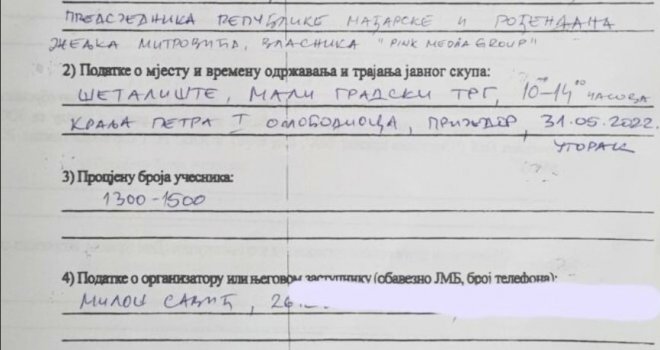 ПРЕДСЈЕДНИКА РЕПУБЛИКЕ МАЂАРСКЕ И РОЂЕНДАНА
ЖЕЉКА МИТРОВИЋА, ВЛАСНИКА "PINK MEDIA GROUP"
2) Податке о мјесту и времену одржавања и трајања јавног скупа:
ШЕТАЛИШТЕ, МАЛИ ГРАДСКИ ТРГ, 10⁰⁰-14⁰⁰ ЧАСОВА
КРАЉА ПЕТРА I ОСЛОБОДИОЦА, ПРИЈЕДОР, 31.05.2022.
УТОРАК
3) Процјену броја учесника:
1300-1500
4) Податке о организатору или његовом заступнику (обавезно ЈМБ, број телефона):
МИЛОШ САВИЋ, 26.